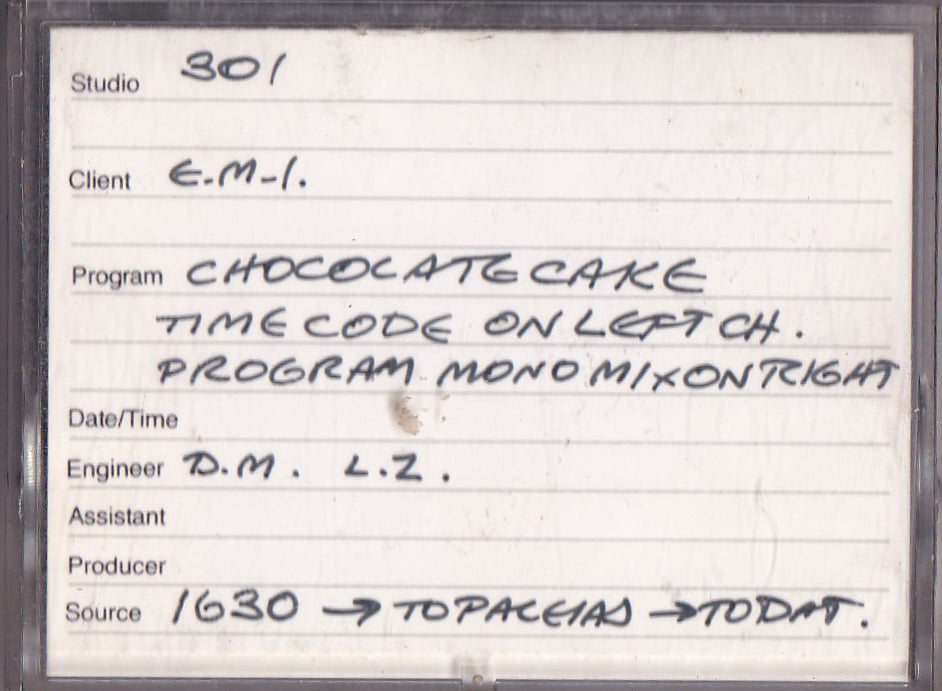 Studio 301
Client E.M-I.
Program CHOCOLATE CAKE
TIME CODE ON LEFT CH.
PROGRAM MONO MIX ON RIGHT
Date/Time
Engineer D.M. L.Z.
Assistant
Producer
Source 1630 → TO → TO DAT.